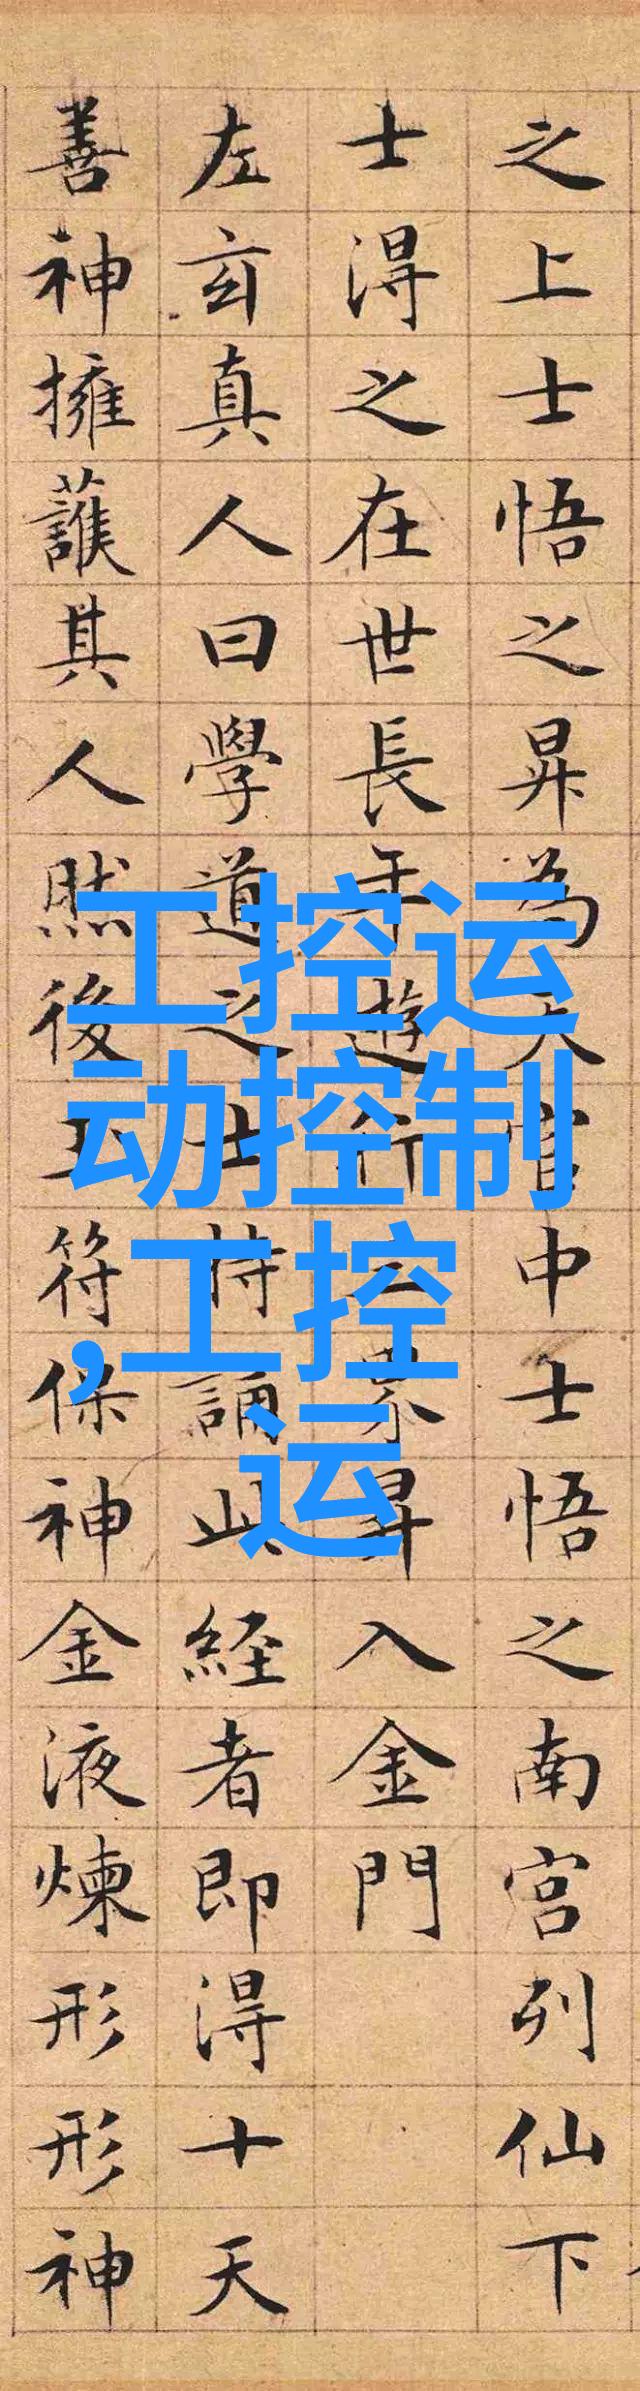 之上士悟之昇為天官中士悟之南宮列仙下
士得之在世長年遊行三界昇入金門
左玄真人曰學道之士持誦此經者即得十天
善神擁護其人然後玉符保神金液煉形形神
工控运
动控制
,工控
运